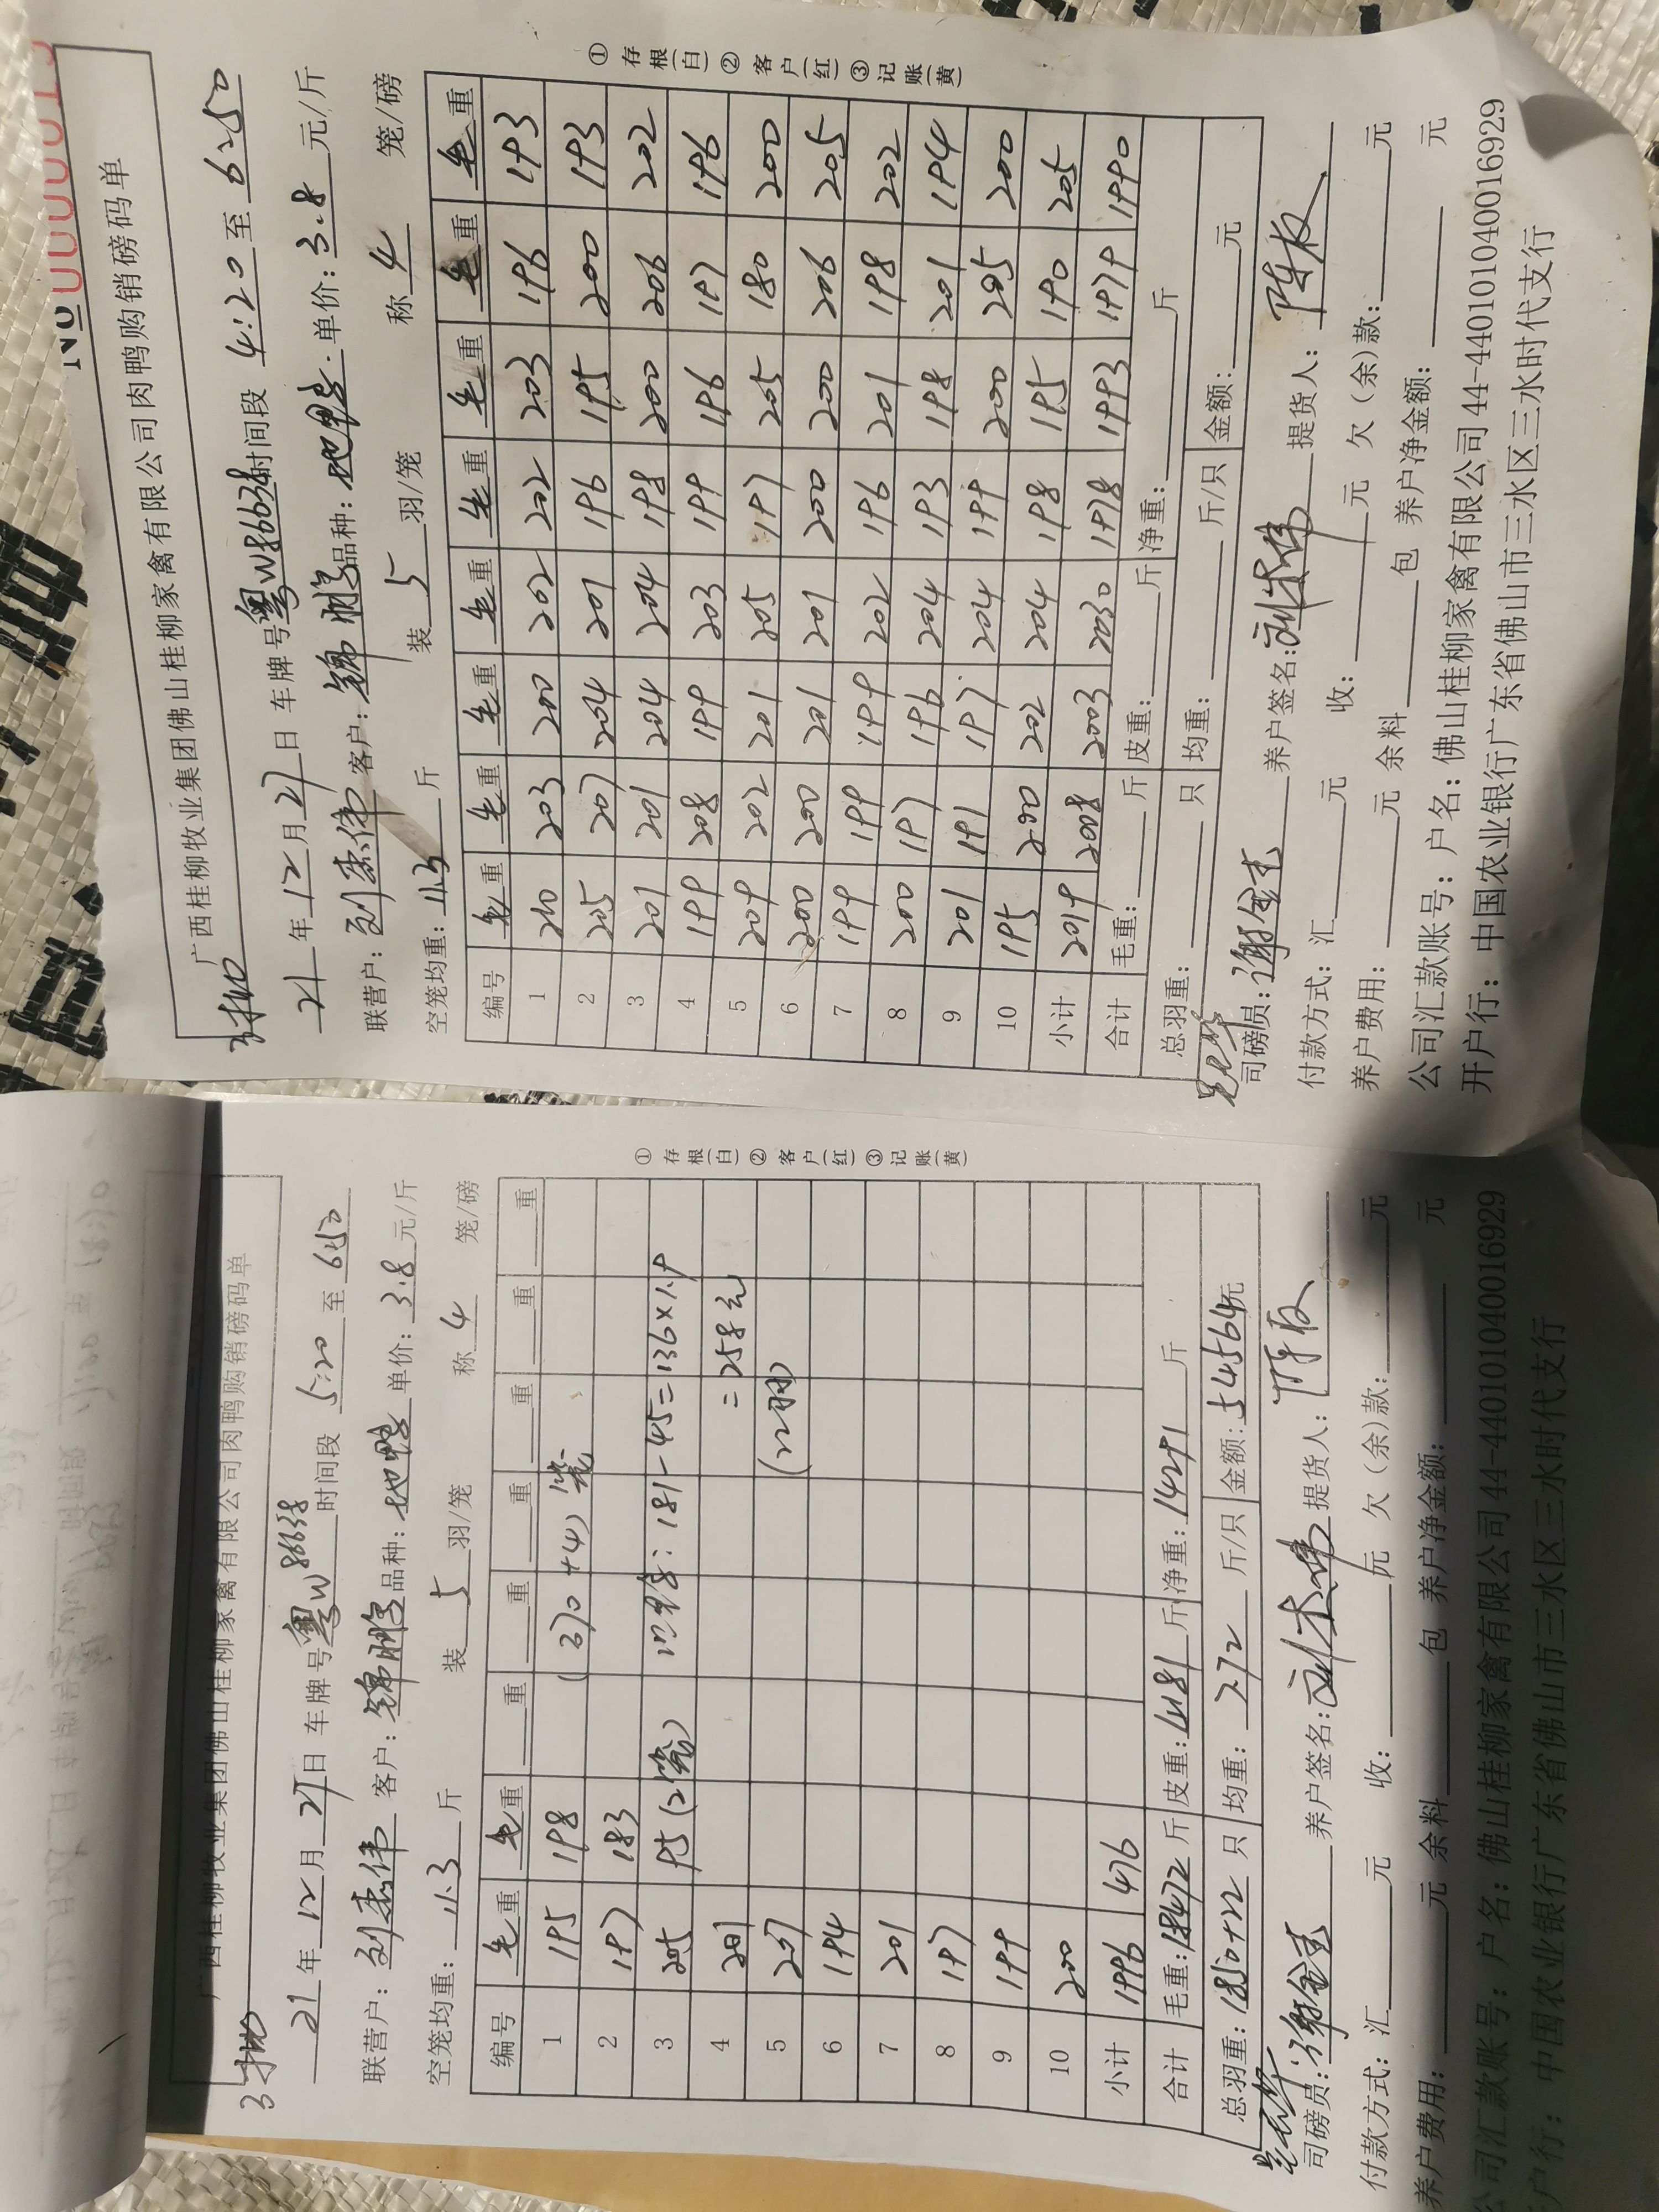 广西桂柳牧业集团佛山桂柳家禽有限公司肉鸭购销磅码单
21年12月27日 车牌号粤W86638时间段 4:20至6:50
联营户:刘志伟客户:锦鹏 品种:地鸭 单价:3.8元/斤
空笼均重:11.3斤 装5羽/笼 称4笼/磅
编号 毛重 毛重 毛重 毛重 毛重 毛重 毛重 毛重
1 210 203 200 202 202 203 196 193
2 205 207 204 201 196 195 200 193
3 201 201 204 204 198 200 206 202
4 199 208 199 203 199 196 197 196
5 209 202 201 205 197 205 180 200
6 200 200 201 201 200 200 206 205
7 199 199 199 202 196 201 198 202
8 200 197 196 204 193 198 201 194
9 201 191 197 204 199 200 205 200
10 195 200 202 204 198 195 190 205
小计 2019 2008 2003 2030 1978 1993 1979 1990
合计 毛重:斤 皮重:斤 净重:斤
总羽重:只 均重:斤/只 金额:元
司磅员:谢金圭 养户签名: 提货人:
付款方式:汇元 收:元 欠(余)款:元
养户费用:元 余料包 养户净金额:元
公司汇款账号:户名:佛山桂柳家禽有限公司44-440101040016929
开户行:中国农业银行广东省佛山市三水区三水时代支行
①存根(白)②客户(红)③记账(黄)
广西桂柳牧业集团佛山桂柳家禽有限公司肉鸭购销磅码单
21年12月27日 车牌号粤W86638时间段 5:20至6:50
联营户:刘志伟 客户:锦鹏 品种:地鸭 单价:3.8元/斤
空笼均重:11.3斤 装5羽/笼 称4笼/磅
编号 毛重 毛重 重 重 重 重 重 重
1 195 198 (370+4)1笼
2 197 183
3 205 95(2笼) 181-45=136×1.9
4 201 =258元
5 207 (22羽)
6 194
7 201
8 197
9 199
10 200
小计 1996 476
合计 毛重:18472斤 皮重:4181斤 净重:14291斤
总羽重:1850+22只 均重:7.72斤/只 金额:54564元
司磅员:谢金圭 养户签名: 提货人:
付款方式:汇元 收:元 欠(余)款:元
养户费用:元 余料包 养户净金额:元
公司汇款账号:户名:佛山桂柳家禽有限公司44-440101040016929
户行:中国农业银行广东省佛山市三水区三水时代支行
①存根(白)②客户(红)③记账(黄)